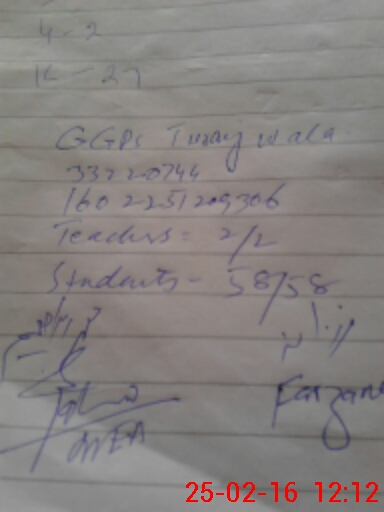 4-2
K-27
GGPS Turajwala
33220744
1602251209306
Teachers = 2/2
Students - 58/58
Farzana
25-02-16 12:12